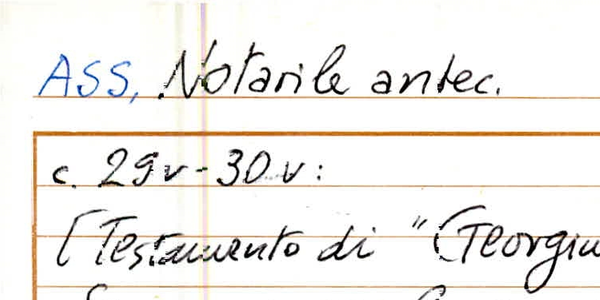 ASS, Notarile antec.
c. 29v-30v:
[Testamento di "Georgiu